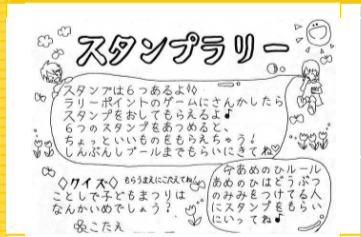 スタンプラリー
スタンプは6つあるよ!◊
ラリーポイントのゲームにさんかしたら
スタンプをおしてもらえるよ♪
6つのスタンプをあつめると、
ちょっといいものをもらえちゃう!
しんぶんしプールまでもらいにきてね♡
◇クイズ◇ もらうまえにこたえてね!
ことしで子どもまつりは
なんかいめでしょう?
こたえ
今あめのひルール
あめのひはどうぶつ
のみみをつけてる人
にスタンプをもらい
にいってね♪